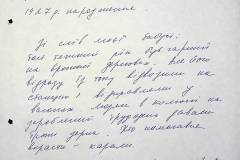 1927 р. народження.
Зі слів моєї бабусі:
Той голодний рік був гарний
на врожай зернових. Але його
відразу й току відвозили на
станцію і відправляли у
вагонах. Людям в колгоспі на
зароблений трудодень давали
трохи зерна. Хто намагався
вкрасти - карали.